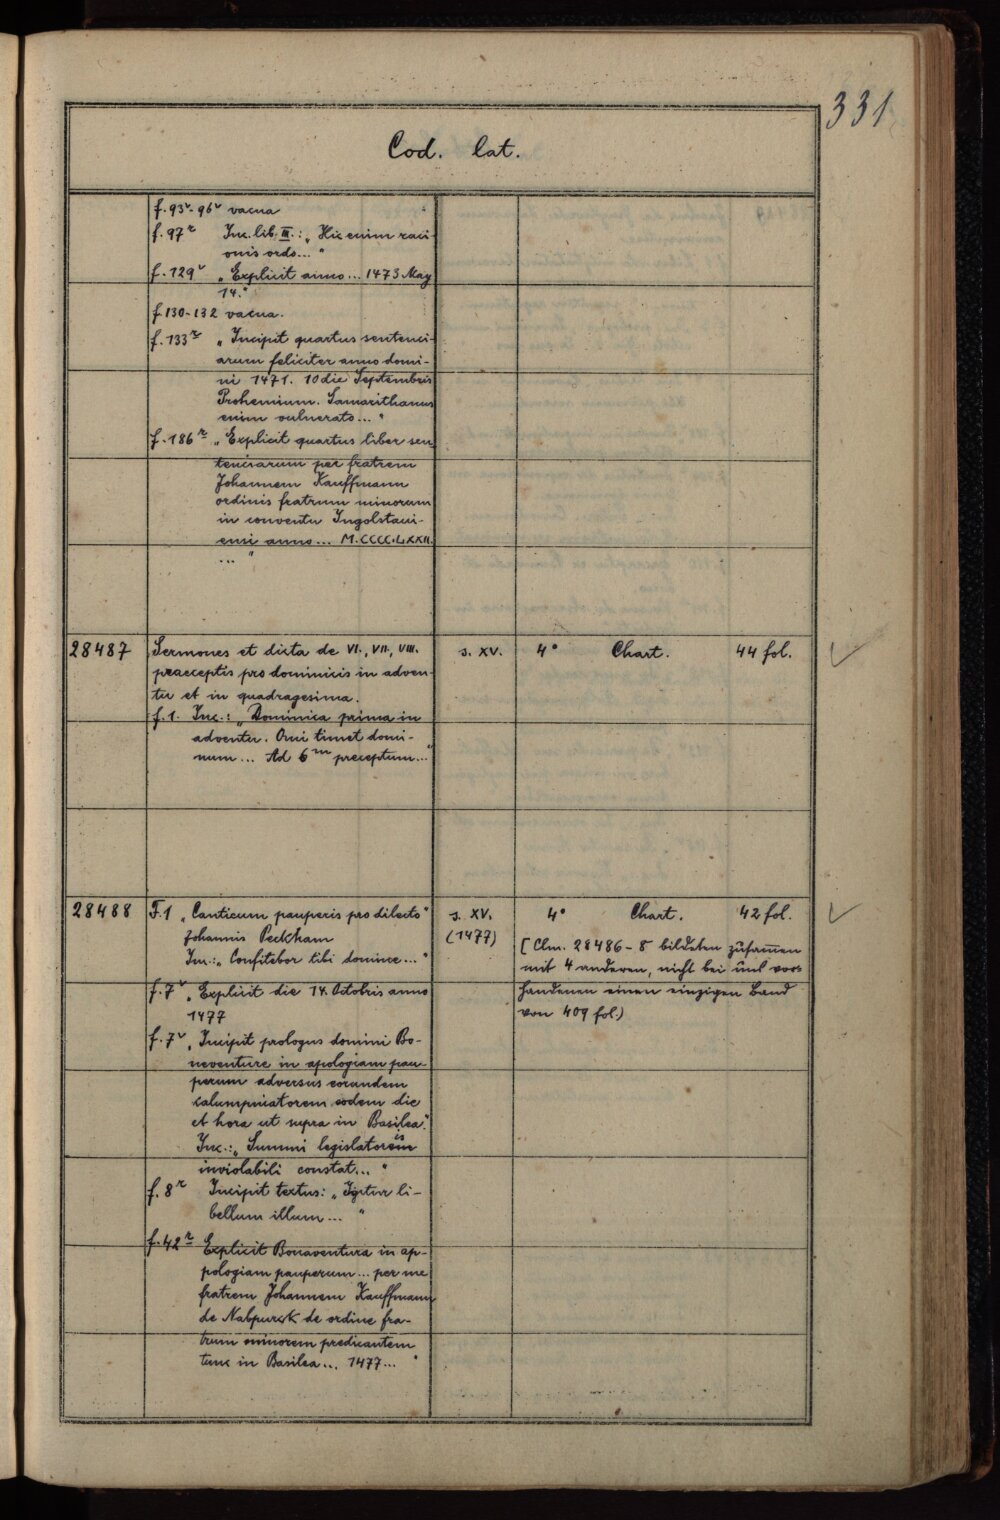 331
Cod. lat.
f. 93v-96v vacua
f. 97r Inc. lib. III.: „Hic enim raci-
onis ordo..."
f. 129v „Explicit anno... 1473 May
14."
f. 130-132 vacua.
f. 133r „Incipit quartus sentenci-
arum feliciter anno domi-
ni 1471. 10 die Septembris
Prohemium. Samarithanus
enim vulnerato..."
f. 186r „Explicit quartus liber sen-
tenciarum per fratrem
Johannem Kauffmann
ordinis fratrum minorum
in conventu Ingolstavi-
ensi anno... M.CCCC.LXXII.
..."
28487 Sermones et dicta de VI., VII., VIII. s. XV. 4° Chart. 44 fol.
praeceptis pro dominicis in adven-
tu et in quadragesima.
f. 1. Inc.: „Dominica prima in
adventu. Qui timet domi-
num... Ad 6m preceptum..."
28488 F. 1 „Canticum pauperis pro dilecto" s. XV. 4° Chart. 42 fol.
Johannis Peckham (1477)
Inc.: „Confitebor tibi domine..."
[Clm. 28486-8 bildeten zusammen
mit 4 anderen, nicht bei uns vor-
handenen einen einzigen Band
von 409 fol.)
f. 7v „Explicit die 14. Octobris anno
1477
f. 7v „Incipit prologus domini Bo-
neventure in apologiam pau-
perum adversus eorundem
calumpniatorem eodem die
et hora ut supra in Basilea."
Inc.: „Summi legislatoris
inviolabili constat..."
f. 8r Incipit textus: „Igitur li-
bellum illum..."
f. 42r Explicit Bonaventura in ap-
pologiam pauperum... per me
fratrem Johannem Kauffmann
de Nabpurck de ordine fra-
trum minorem predicantem
tunc in Basilea... 1477..."